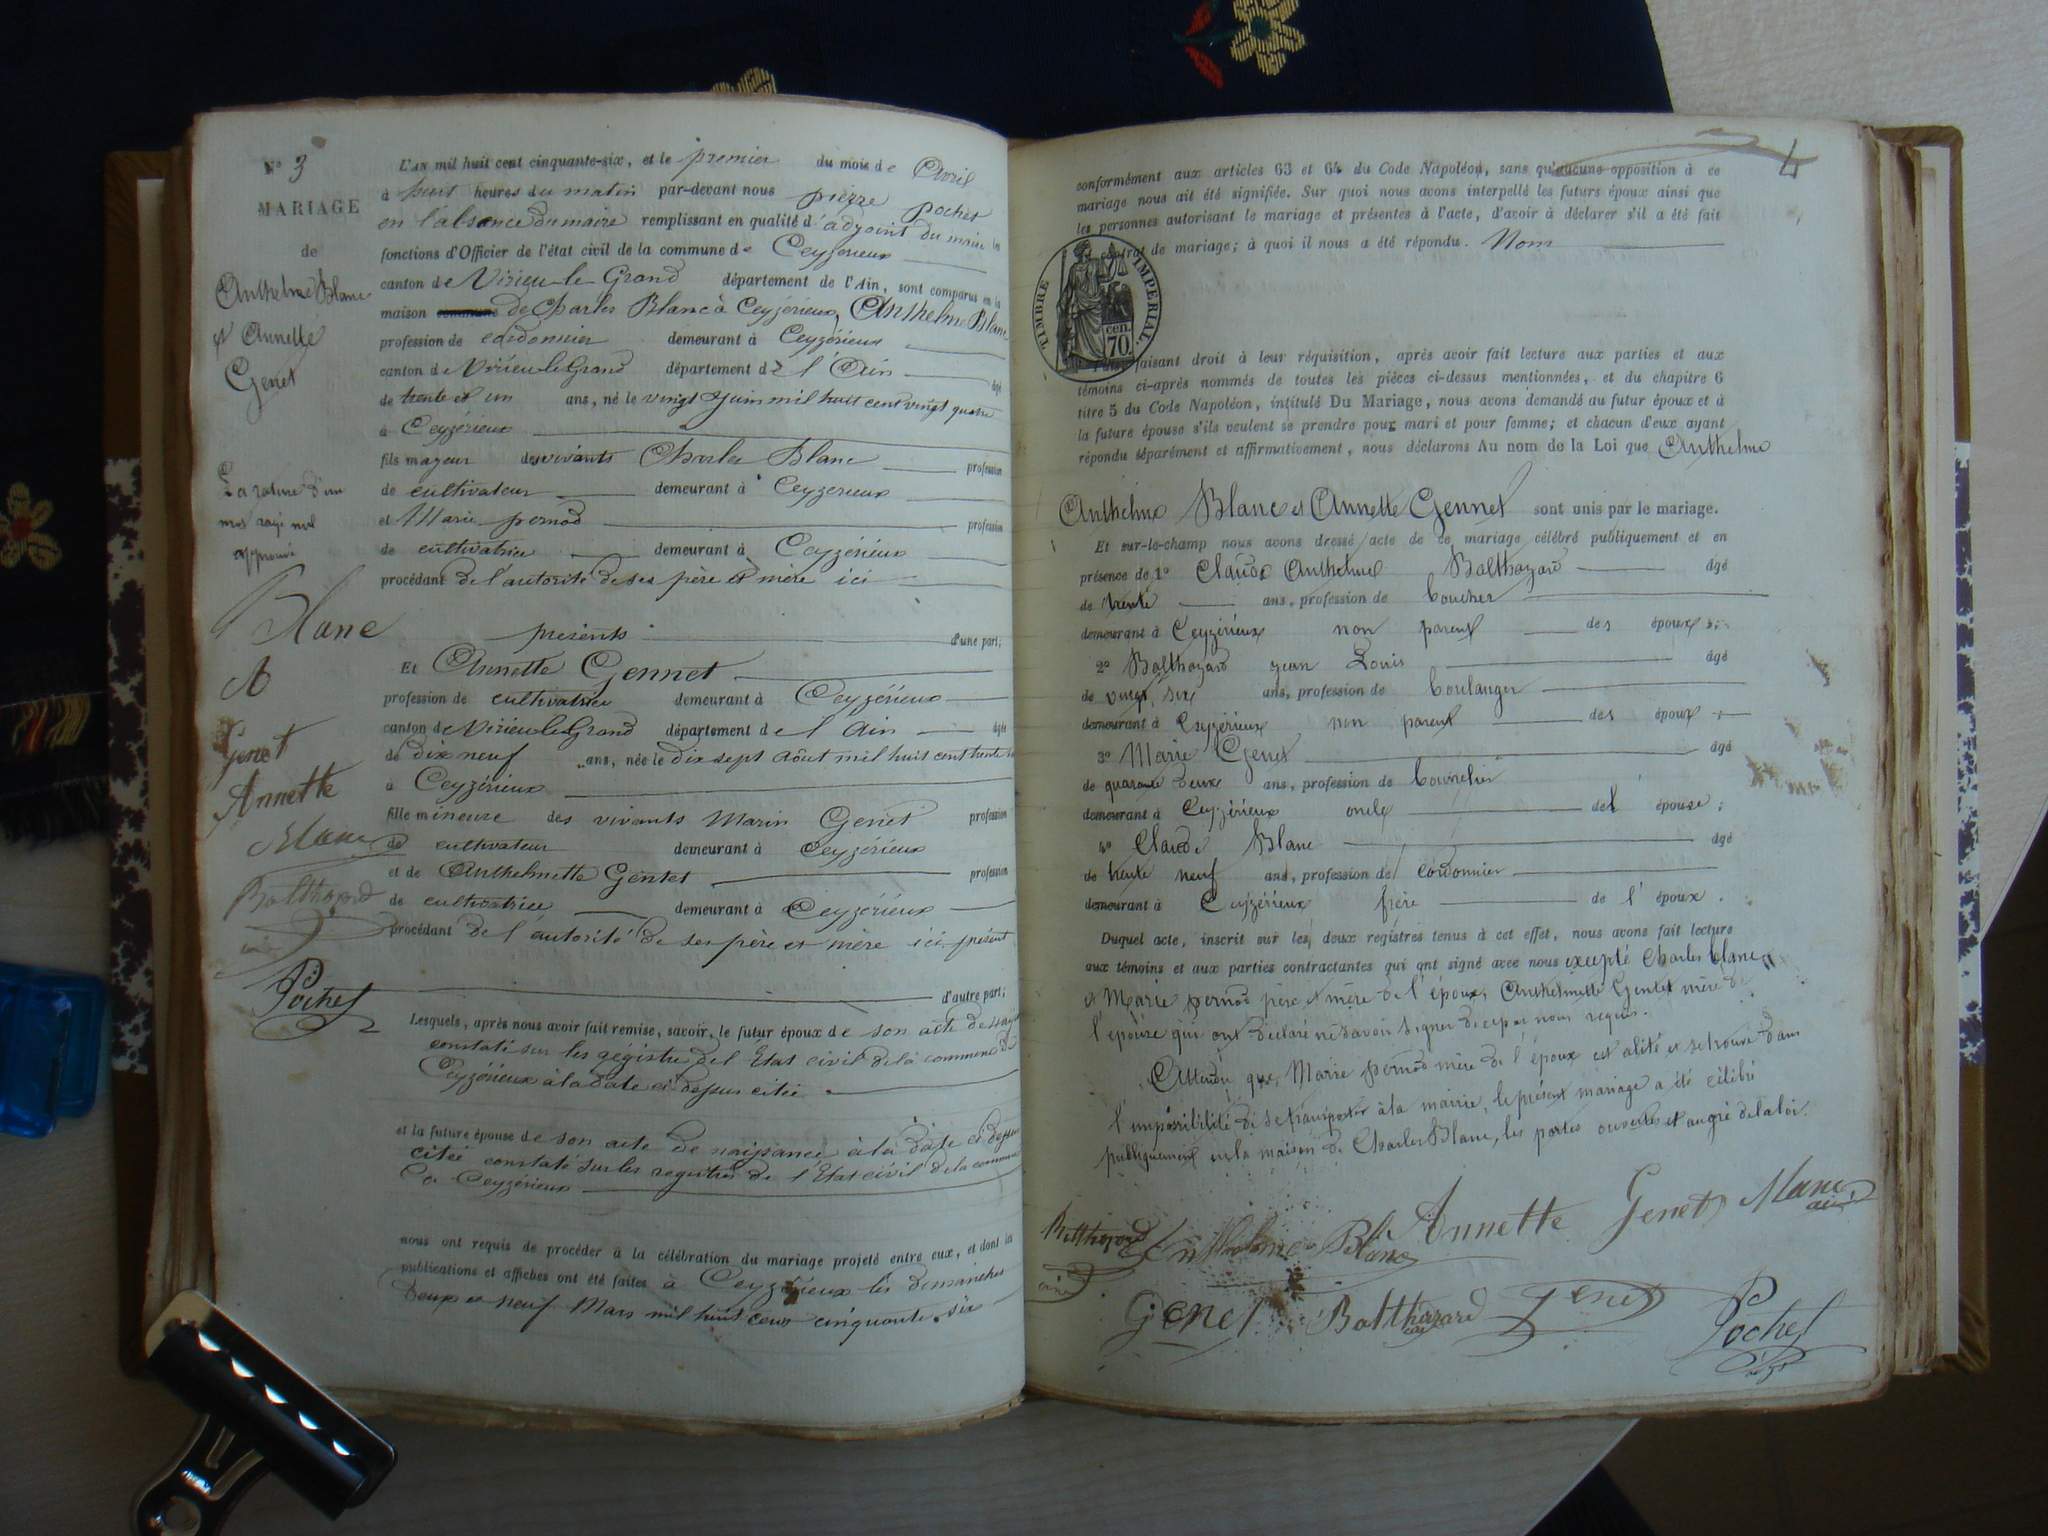 N° 3
MARIAGE
de
Anthelme Blanc
et Annette
Genet
La rature d'un
mot rayé nul
approuvé
Blanc
A
Genet
Annette
Blanc
Balthazard
ainé
Pochet
L'AN mil huit cent cinquante-six, et le premier du mois de Avril
à huit heures du matin par-devant nous pierre pochet
en l'absence du maire remplissant en qualité d'adjoint du maire les
fonctions d'Officier de l'état civil de la commune de Ceyzerieux
canton de Virieu-le-Grand département de l'Ain, sont comparus en la
maison commune de Charles Blanc à Ceyzérieux, Anthelme Blanc
profession de cordonnier demeurant à Ceyzérieux
canton de Virieu-le-Grand département de l'Ain âgé
de trente et un ans, né le vingt Juin mil huit cent vingt quatre
à Ceyzérieux
fils majeur des vivants Charles Blanc profession
de cultivateur demeurant à Ceyzerieux
et Marie pernod profession
de cultivatrice demeurant à Ceyzérieux
procédant de l'autorité de ses père et mère ici
présents d'une part;
Et Annette Gennet
profession de cultivatrice demeurant à Ceyzérieux
canton de Virieu-le-Grand département de l'Ain âgée
de dix neuf ans, née le dix sept Août mil huit cent trente
à Ceyzérieux
fille mineure des vivants Marin Genet profession
de cultivateur demeurant à Ceyzérieux
et de Anthelmette Gentet profession
de cultivatrice demeurant à Ceyzérieux
procédant de l'autorité de ses père et mère ici présent
d'autre part;
Lesquels, après nous avoir fait remise, savoir, le futur époux de son acte de
constaté sur les régistre de l'Etat civil de la commune de
Ceyzérieux à la date ci dessus citée
et la future épouse de son acte de naissance à la date ci dessus
citée constaté sur les registres de l'Etat civil de la commune
de Ceyzérieux
nous ont requis de procéder à la célébration du mariage projeté entre eux, et dont les
publications et affiches ont été faites à Ceyzérieux les dimanches
Deux et neuf Mars mil huit cent cinquante-six
4
conformément aux articles 63 et 64 du Code Napoléon, sans qu'aucune opposition à ce
mariage nous ait été signifiée. Sur quoi nous avons interpellé les futurs époux ainsi que
les personnes autorisant le mariage et présentes à l'acte, d'avoir à déclarer s'il a été fait
contrat de mariage; à quoi il nous a été répondu. Non
TIMBRE IMPÉRIAL.
70 cen.
faisant droit à leur réquisition, après avoir fait lecture aux parties et aux
témoins ci-après nommés de toutes les pièces ci-dessus mentionnées, et du chapitre 6
titre 5 du Code Napoléon, intitulé Du Mariage, nous avons demandé au futur époux et à
la future épouse s'ils veulent se prendre pour mari et pour femme; et chacun d'eux ayant
répondu séparément et affirmativement, nous déclarons Au nom de la Loi que Anthelme
Anthelme Blanc et Annette Gennet sont unis par le mariage.
Et sur-le-champ nous avons dressé acte de ce mariage célébré publiquement et en
présence de 1° Claude Anthelme Balthazard âgé
de trente ans, profession de boucher
demeurant à Ceyzérieux non parent des époux;
2° Balthazard jean Louis âgé
de vingt six ans, profession de boulanger
demeurant à Ceyzérieux non parent des époux
3° Marie Genet âgé
de quarante deux ans, profession de
demeurant à Ceyzérieux oncle de l'épouse;
4° Claude Blanc âgé
de trente neuf ans, profession de cordonnier
demeurant à Ceyzérieux frère de l'époux.
Duquel acte, inscrit sur les deux registres tenus à cet effet, nous avons fait lecture
aux témoins et aux parties contractantes qui ont signé avec nous excepté Charles blanc
et Marie pernod père et mère de l'époux, Anthelmette Gentet mère de
l'épouse qui ont déclaré ne savoir signer de ce par nous requis.
Attendu que Marie pernod mère de l'époux est alité et se trouve dans
l'impossibilité de se transporter à la mairie, le présent mariage a été célébré
publiquement en la maison de Charles Blanc, les portes ouvertes et au gré de la loi.
Balthazard Anthelme Blanc Annette Genet Blanc
ainé
Genet Balthazard Genet Pochet